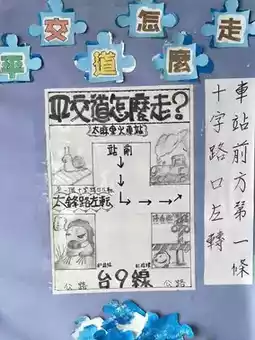 平交道怎麼走
平交道怎麼走?
(太麻里火車站)
站前
左転
台9線
公路
公路
車站前方第一條
十字路口左轉